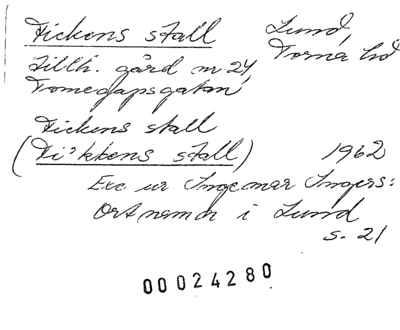 Fickens stall Lund,
Torna hd
Tillh. gård nr 24,
Tomegapsgatan
Fickens stall
(Fi³kkens stall) 1962
Exc ur Ingemar Ingers:
Ortnamn i Lund
s. 21
00024280